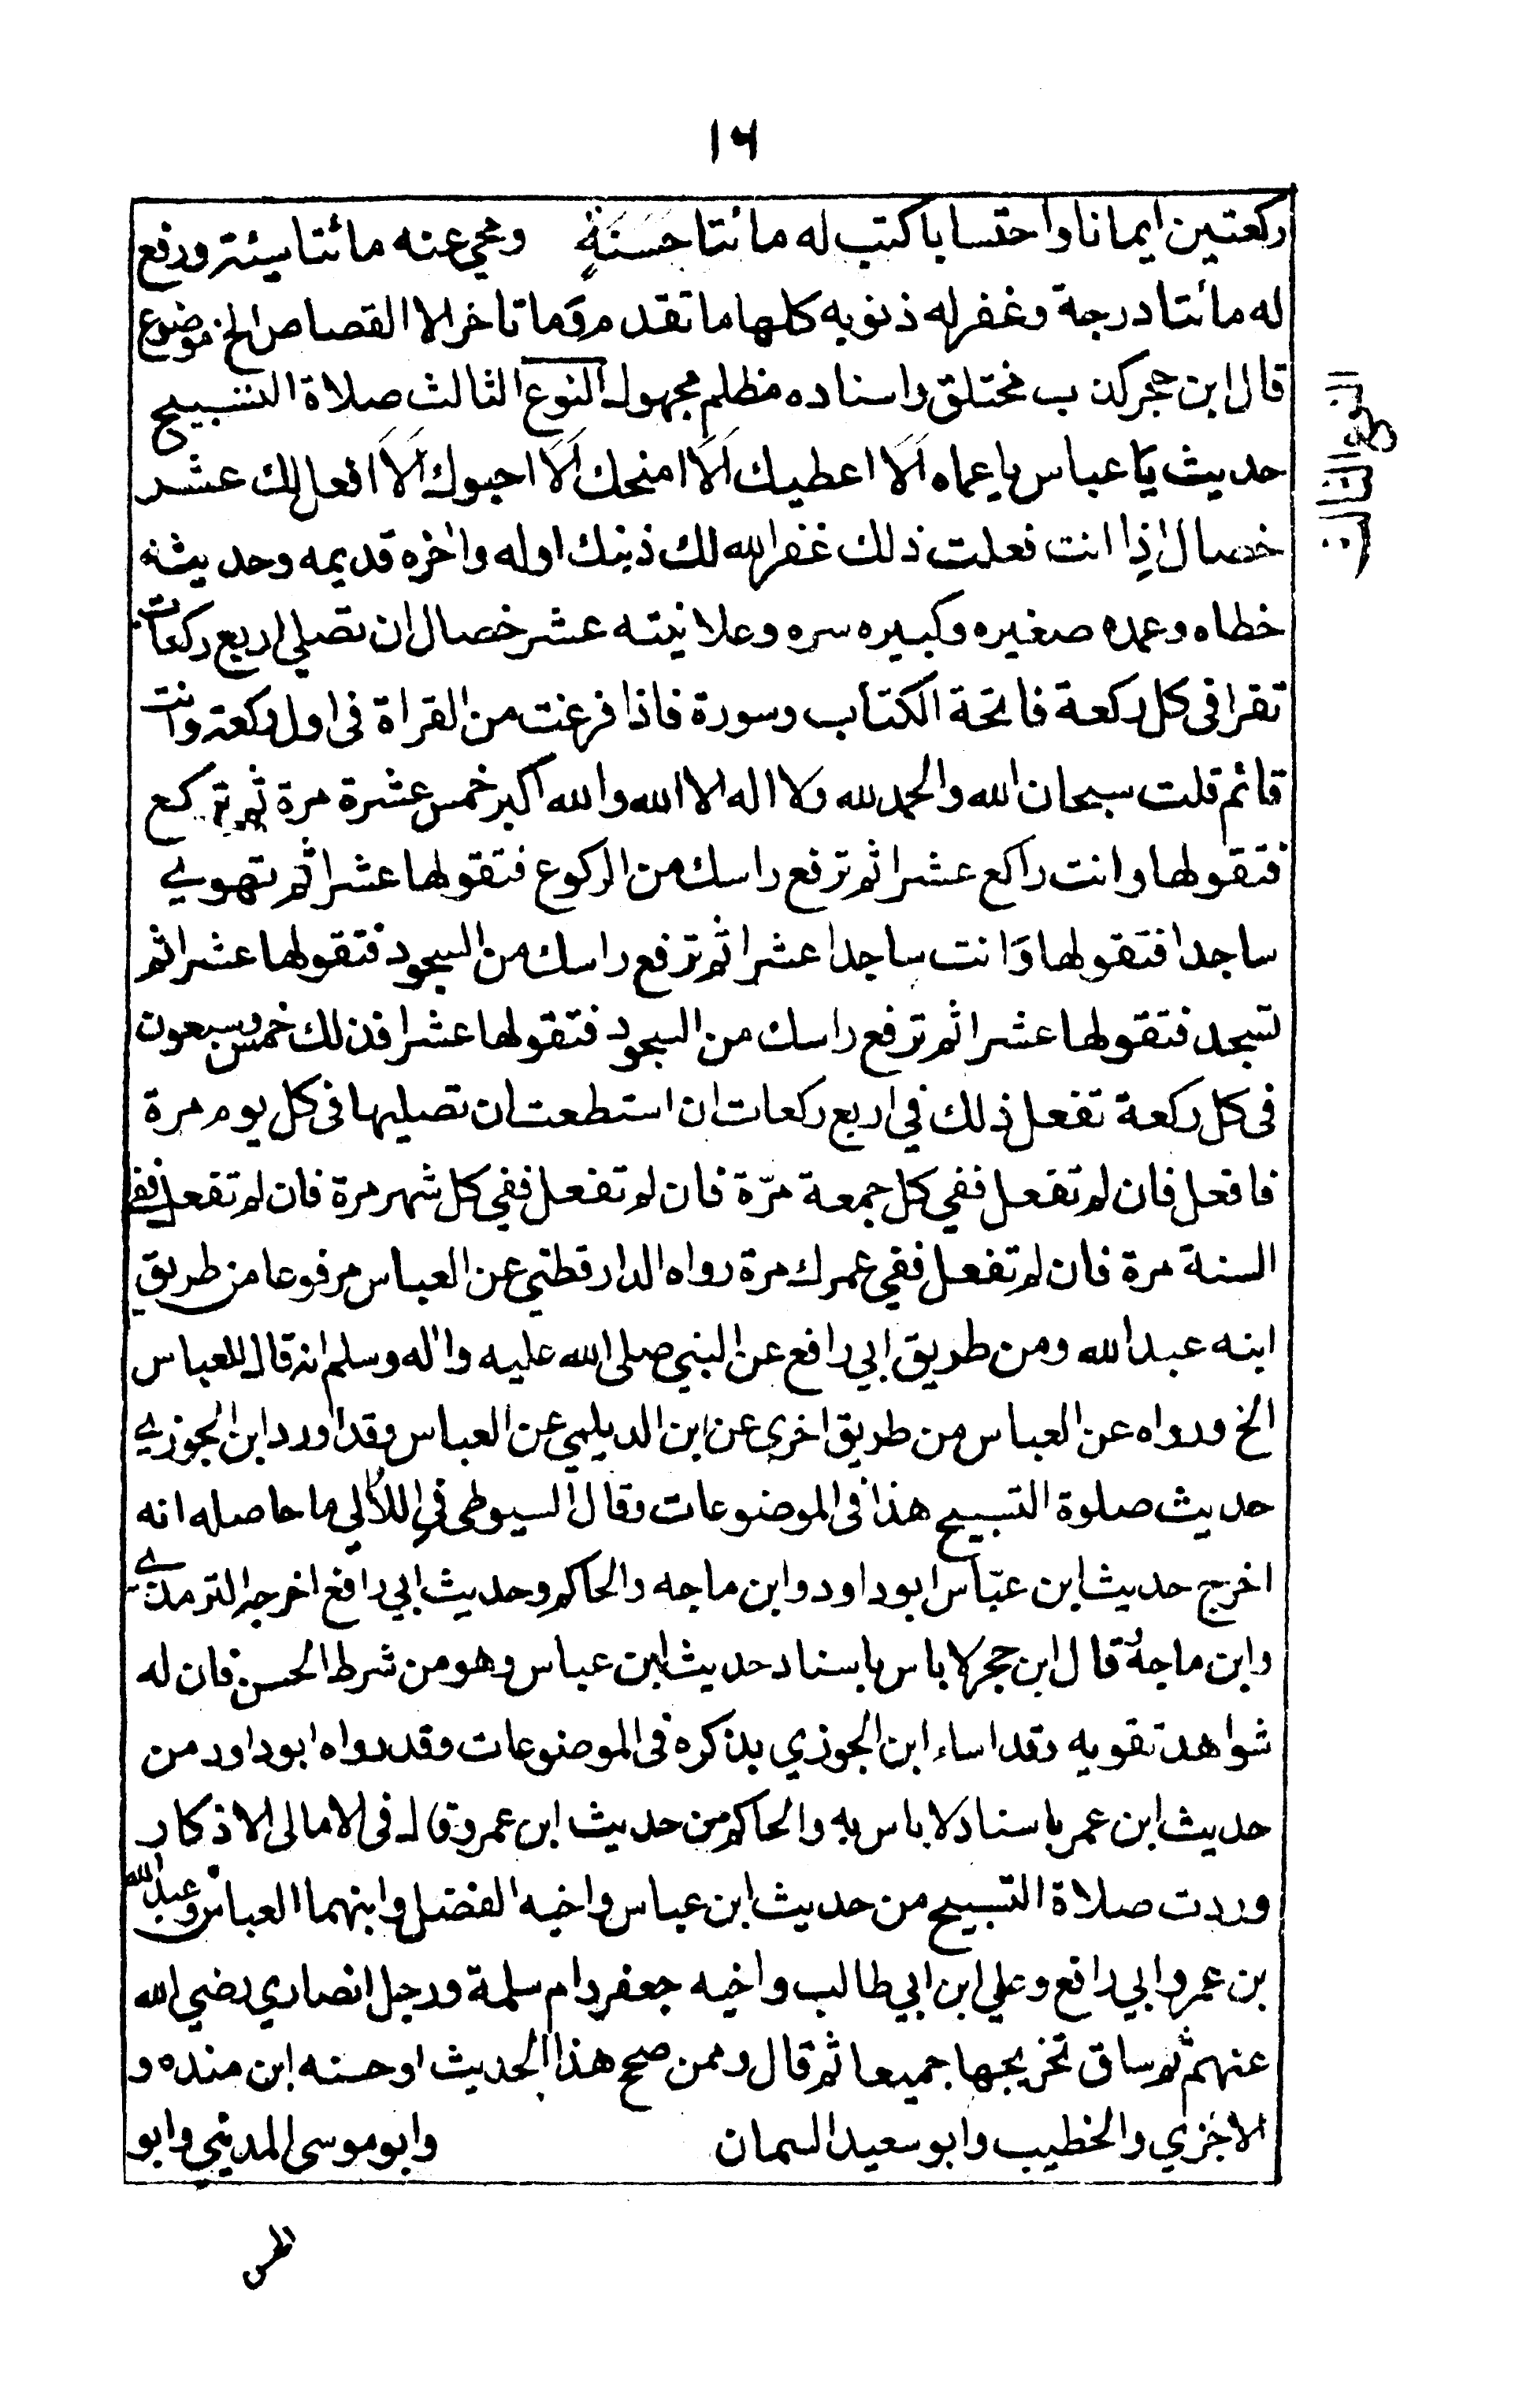 ١٦
ركعتين ايمانا واحتسابا كتب له مائتا حَسَنَةٍ ومحي عنه مائتا سيئة ورفع
له مائتا درجة وغفر له ذنوبه كلها ما تقدم وما تاخر الا القصاص الخ موضوع
قال ابن حجر كذب مختلق واسناده مظلم مجهول النوع الثالث صلاة التسبيح
النوع الثالث
حديث يا عباس يا عماه اَلَا اعطيك اَلَا امنحك اَلَا احبوك اَلَا افعل لك عشر
خصال اذا انت فعلت ذلك غفر الله لك ذنبك اوله واخره قديمه وحديثه
خطاه وعمده صغيره وكبيره سره وعلانيته عشر خصال ان تصلي اربع ركعات
تقرا فى كل ركعة فاتحة الكتاب وسورة فاذا فرغت من القراة فى اول ركعة وانت
قائم قلت سبحان الله والحمد لله ولا اله الا الله والله اكبر خمس عشرة مرة ثم تركع
فتقولها وانت راكع عشرا ثم ترفع راسك من الركوع فتقولها عشرا ثم تهوي
ساجدا فتقولها وَانت ساجدا عشرا ثم ترفع راسك من السجود فتقولها عشرا ثم
تسجد فتقولها عشرا ثم ترفع راسك من السجود فتقولها عشرا فذلك خمس وسبعون
فى كل ركعة تفعل ذلك في اربع ركعات ان استطعت ان تصليها فى كل يوم مرة
فافعل فان لم تفعل ففي كل جمعة مرّة فان لم تفعل ففي كل شهر مرة فان لم تفعل ففي
السنة مرة فان لم تفعل ففي عمرك مرة رواه الدارقطني عن العباس مرفوعا من طريق
ابنه عبد الله ومن طريق ابي رافع عن النبي صلى الله عليه واله وسلم انه قال للعباس
الخ ورواه عن العباس من طريق اخرى عن ابن الديلمي عن العباس وقد اورد ابن الجوزي
حديث صلوة التسبيح هذا فى الموضوعات وقال السيوطى في اللآلي ما حاصله انه
اخرج حديث ابن عبّاس ابو داود وابن ماجه والحاكم وحديث ابي رافع اخرجه الترمذي
وابن ماجة قال ابن حجر لا باس باسناد حديث ابن عباس وهو من شرط الحسن فان له
شواهد تقويه وقد اساء ابن الجوزي بذكره فى الموضوعات وقد رواه ابو داود من
حديث ابن عمر باسناد لا باس به والحاكم من حديث ابن عمر وقال فى الامالى الاذكار
وردت صلاة التسبيح من حديث ابن عباس واخيه الفضل وابنهما العباس وعبد الله
بن عمر وابي رافع وعلي ابن ابي طالب واخيه جعفر وام سلمة ورجل انصاري رضي الله
عنهم ثم ساق تخريجها جميعا ثم قال وممن صحح هذا الحديث او حسنه ابن منده و
الاجري والخطيب وابو سعيد السمان وابو موسى المديني وابو